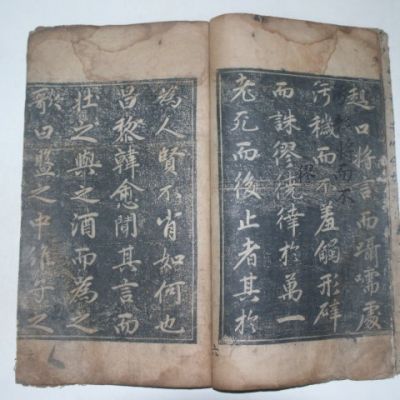 趄口將言而囁嚅處
污穢而不羞觸形辟
而誅戮僥倖於萬一
老死而後止者其於
為人賢不肖如何也
昌黎韓愈聞其言而
壯之與之酒而為之
歌曰盤之中維子之